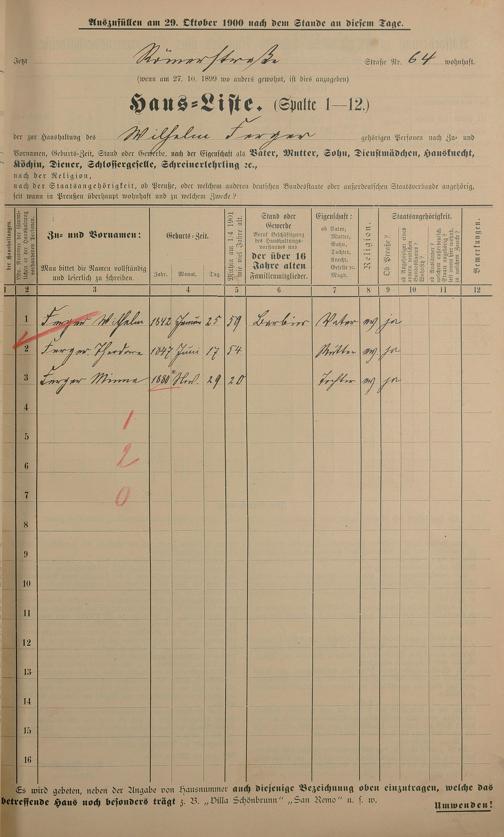 Auszufüllen am 29. Oktober 1900 nach dem Stande an diesem Tage.
Jetzt Römerstraße Straße Nr. 64 wohnhaft.
(wenn am 27. 10. 1899 wo anders gewohnt, ist dies anzugeben)
Haus-Liste. (Spalte 1—12.)
der zur Haushaltung des Wilhelm Ferger gehörigen Personen nach Zu- und
Vornamen, Geburts-Zeit, Stand oder Gewerbe, nach der Eigenschaft als Vater, Mutter, Sohn, Dienstmädchen, Hausknecht,
Köchin, Diener, Schlossergeselle, Schreinerlehrling ꝛc.,
nach der Religion,
nach der Staatsangehörigkeit, ob Preuße, oder welchem anderen deutschen Bundesstaate oder außerdeutschen Staatsverbande angehörig,
seit wann in Preußen überhaupt wohnhaft und zu welchem Zwecke?
Zu- und Vornamen:
Man bittet die Namen vollständig
und leserlich zu schreiben.
Geburts-Zeit.
Jahr. Monat. Tag.
Mithin am 1/4 1901
wie viel Jahre alt.
Stand oder
Gewerbe
Beruf Beschäftigung
des Haushaltungs-
vorstandes und
der über 16
Jahre alten
Familienmitglieder.
Eigenschaft:
ob Vater,
Mutter,
Sohn,
Tochter,
Knecht,
Geselle ꝛc.
Magd.
Religion.
Staatsangehörigkeit.
Ob Preuße?
Bemerkungen.
1 2 3 4 5 6 7 8 9 10 11 12
1 Ferger Wilhelm 1842 Januar 25 59 Barbier Vater ev ja
2 Ferger Theodore 1847 Juni 17 54 Mutter ev ja
3 Ferger Minna 1880 Nov. 29 20 Tochter ev ja
4
1
5
6
2
7
0
8
9
10
11
12
13
14
15
16
Es wird gebeten, neben der Angabe von Hausnummer auch diejenige Bezeichnung oben einzutragen, welche das
betreffende Haus noch besonders trägt z. B. „Villa Schönbrunn" „San Remo" u. s. w.
Umwenden!